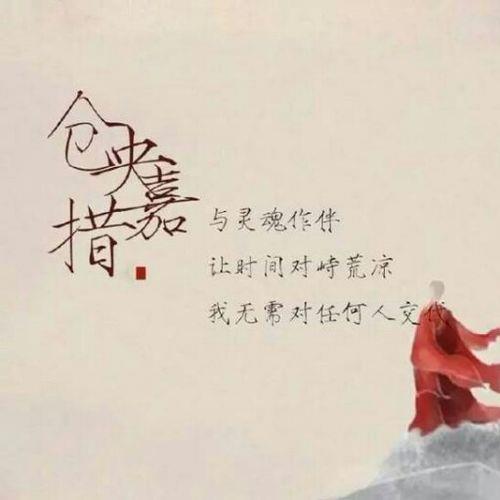 仓央嘉措
与灵魂作伴
让时间对峙荒凉
我无需对任何人交代